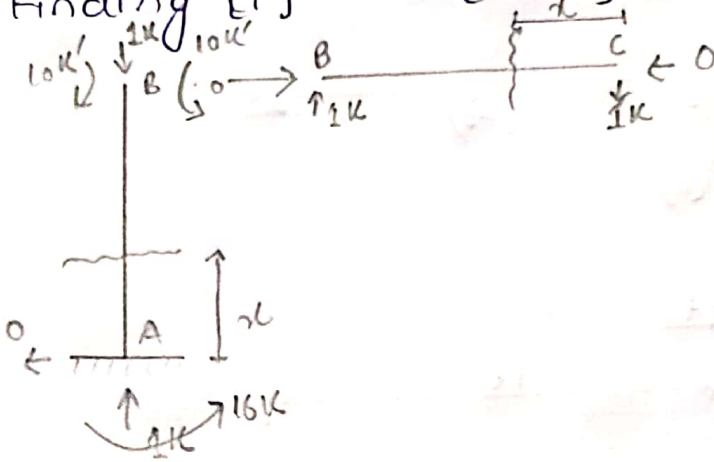 Finding [F]
10K' 1K 10K' x
B 0 B C 0
1K 1K
x
0 A
1K 16K